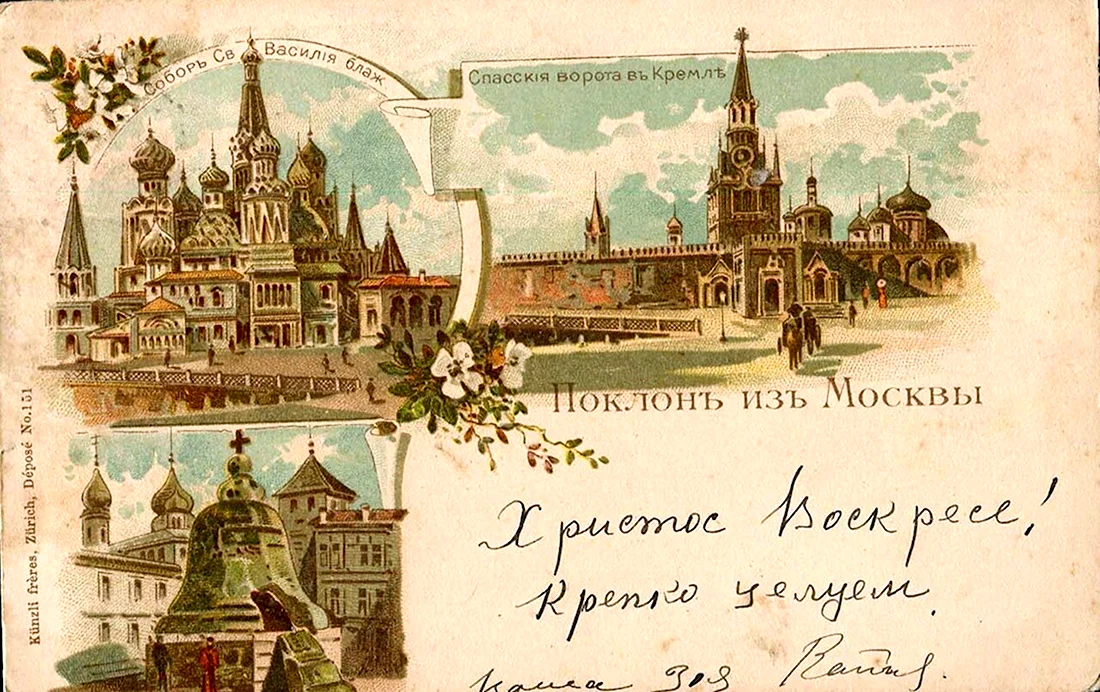 Соборъ Св Василія блаж
Спасскія ворота въ Кремлѣ
Поклонъ изъ Москвы
Künzli frères, Zürich, Déposé No.151
Христос Воскресе!
Крепко целуем
Зоя